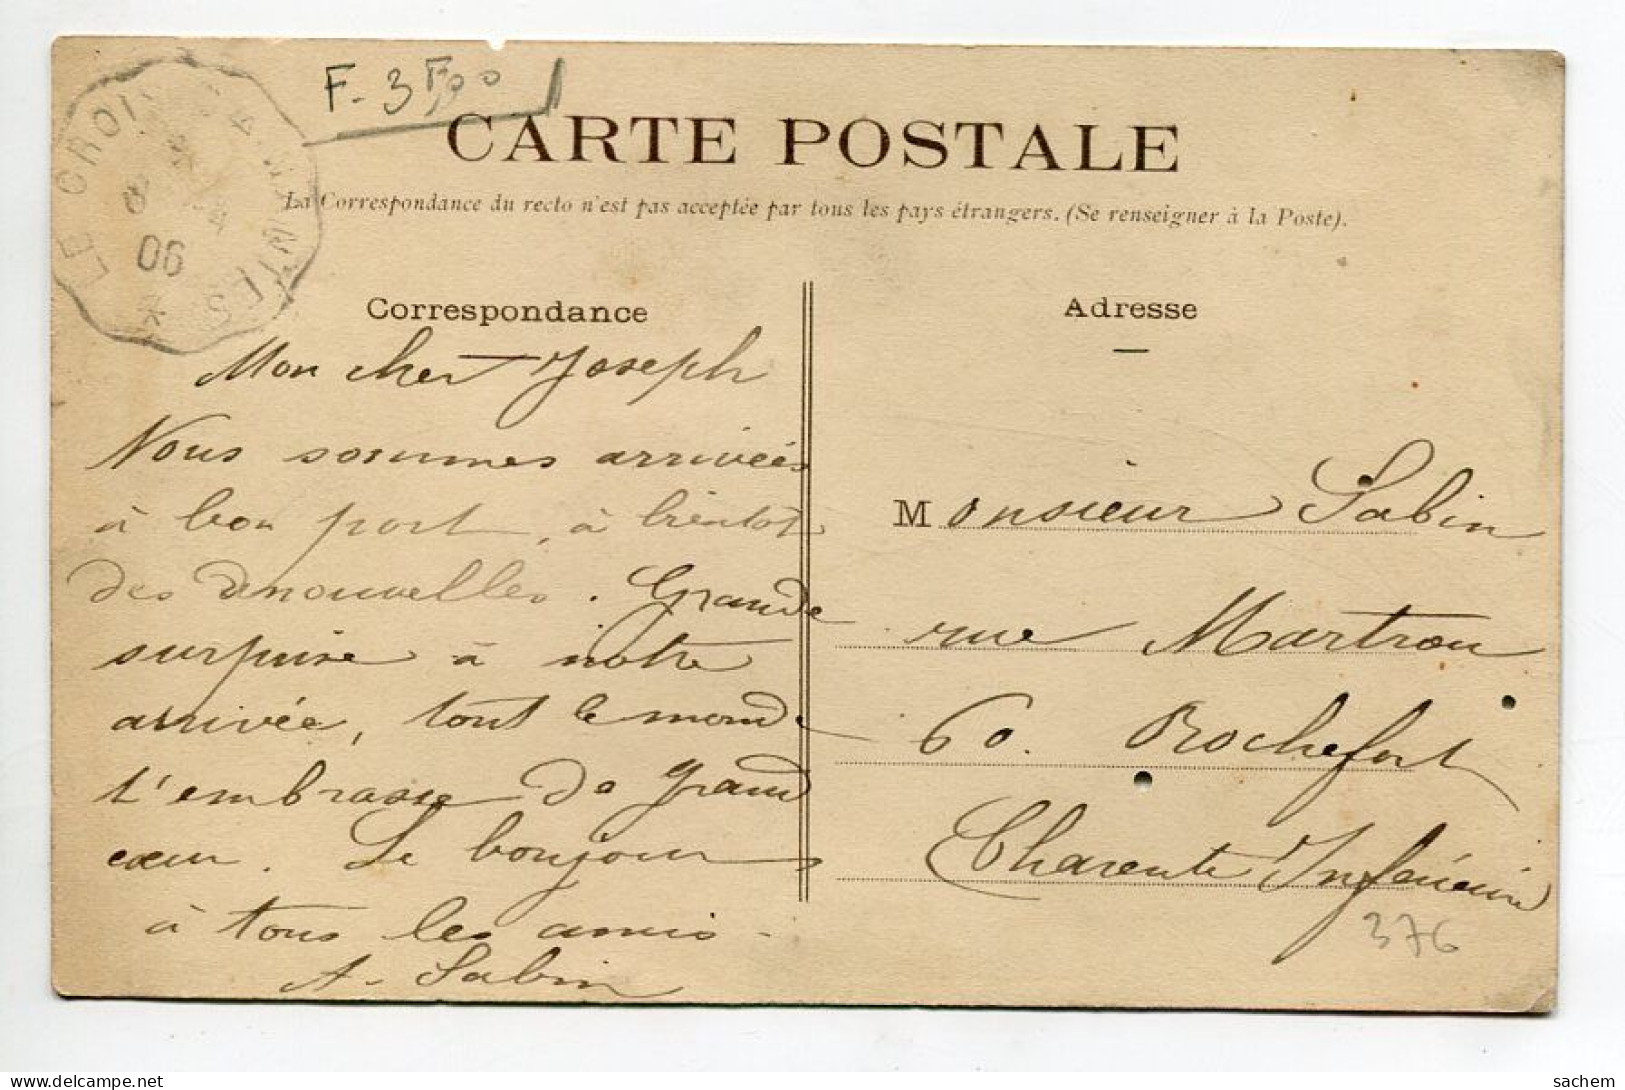 F. 3F00
CARTE POSTALE
La Correspondance du recto n'est pas acceptée par tous les pays étrangers. (Se renseigner à la Poste).
LE CROI A NANTES
06
Correspondance
Mon cher Joseph
Nous sommes arrivées
à bon port, à bientôt
des nouvelles. Grande
surprise à notre
arrivée, tout le monde
t'embrasse de grand
cœur. Le bonjour
à tous les amis.
A. Sabin
Adresse
Monsieur Sabin
rue Martrou
60. Rochefort
Charente Inférieure
376
sachem